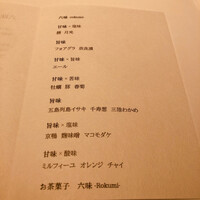 六味 -rokumi-
甘味 × 塩味
旨味
フォアグラ 奈良漬
甘味 × 旨味
甘味 × 苦味
牡蠣
旨味
五島列島イサキ 千寿葱 三陸わかめ
旨味 × 塩味
京鴨 麹味噌 マコモダケ
甘味 × 酸味
ミルフィーユ オレンジ チャイ
お茶菓子 六味 -Rokumi-